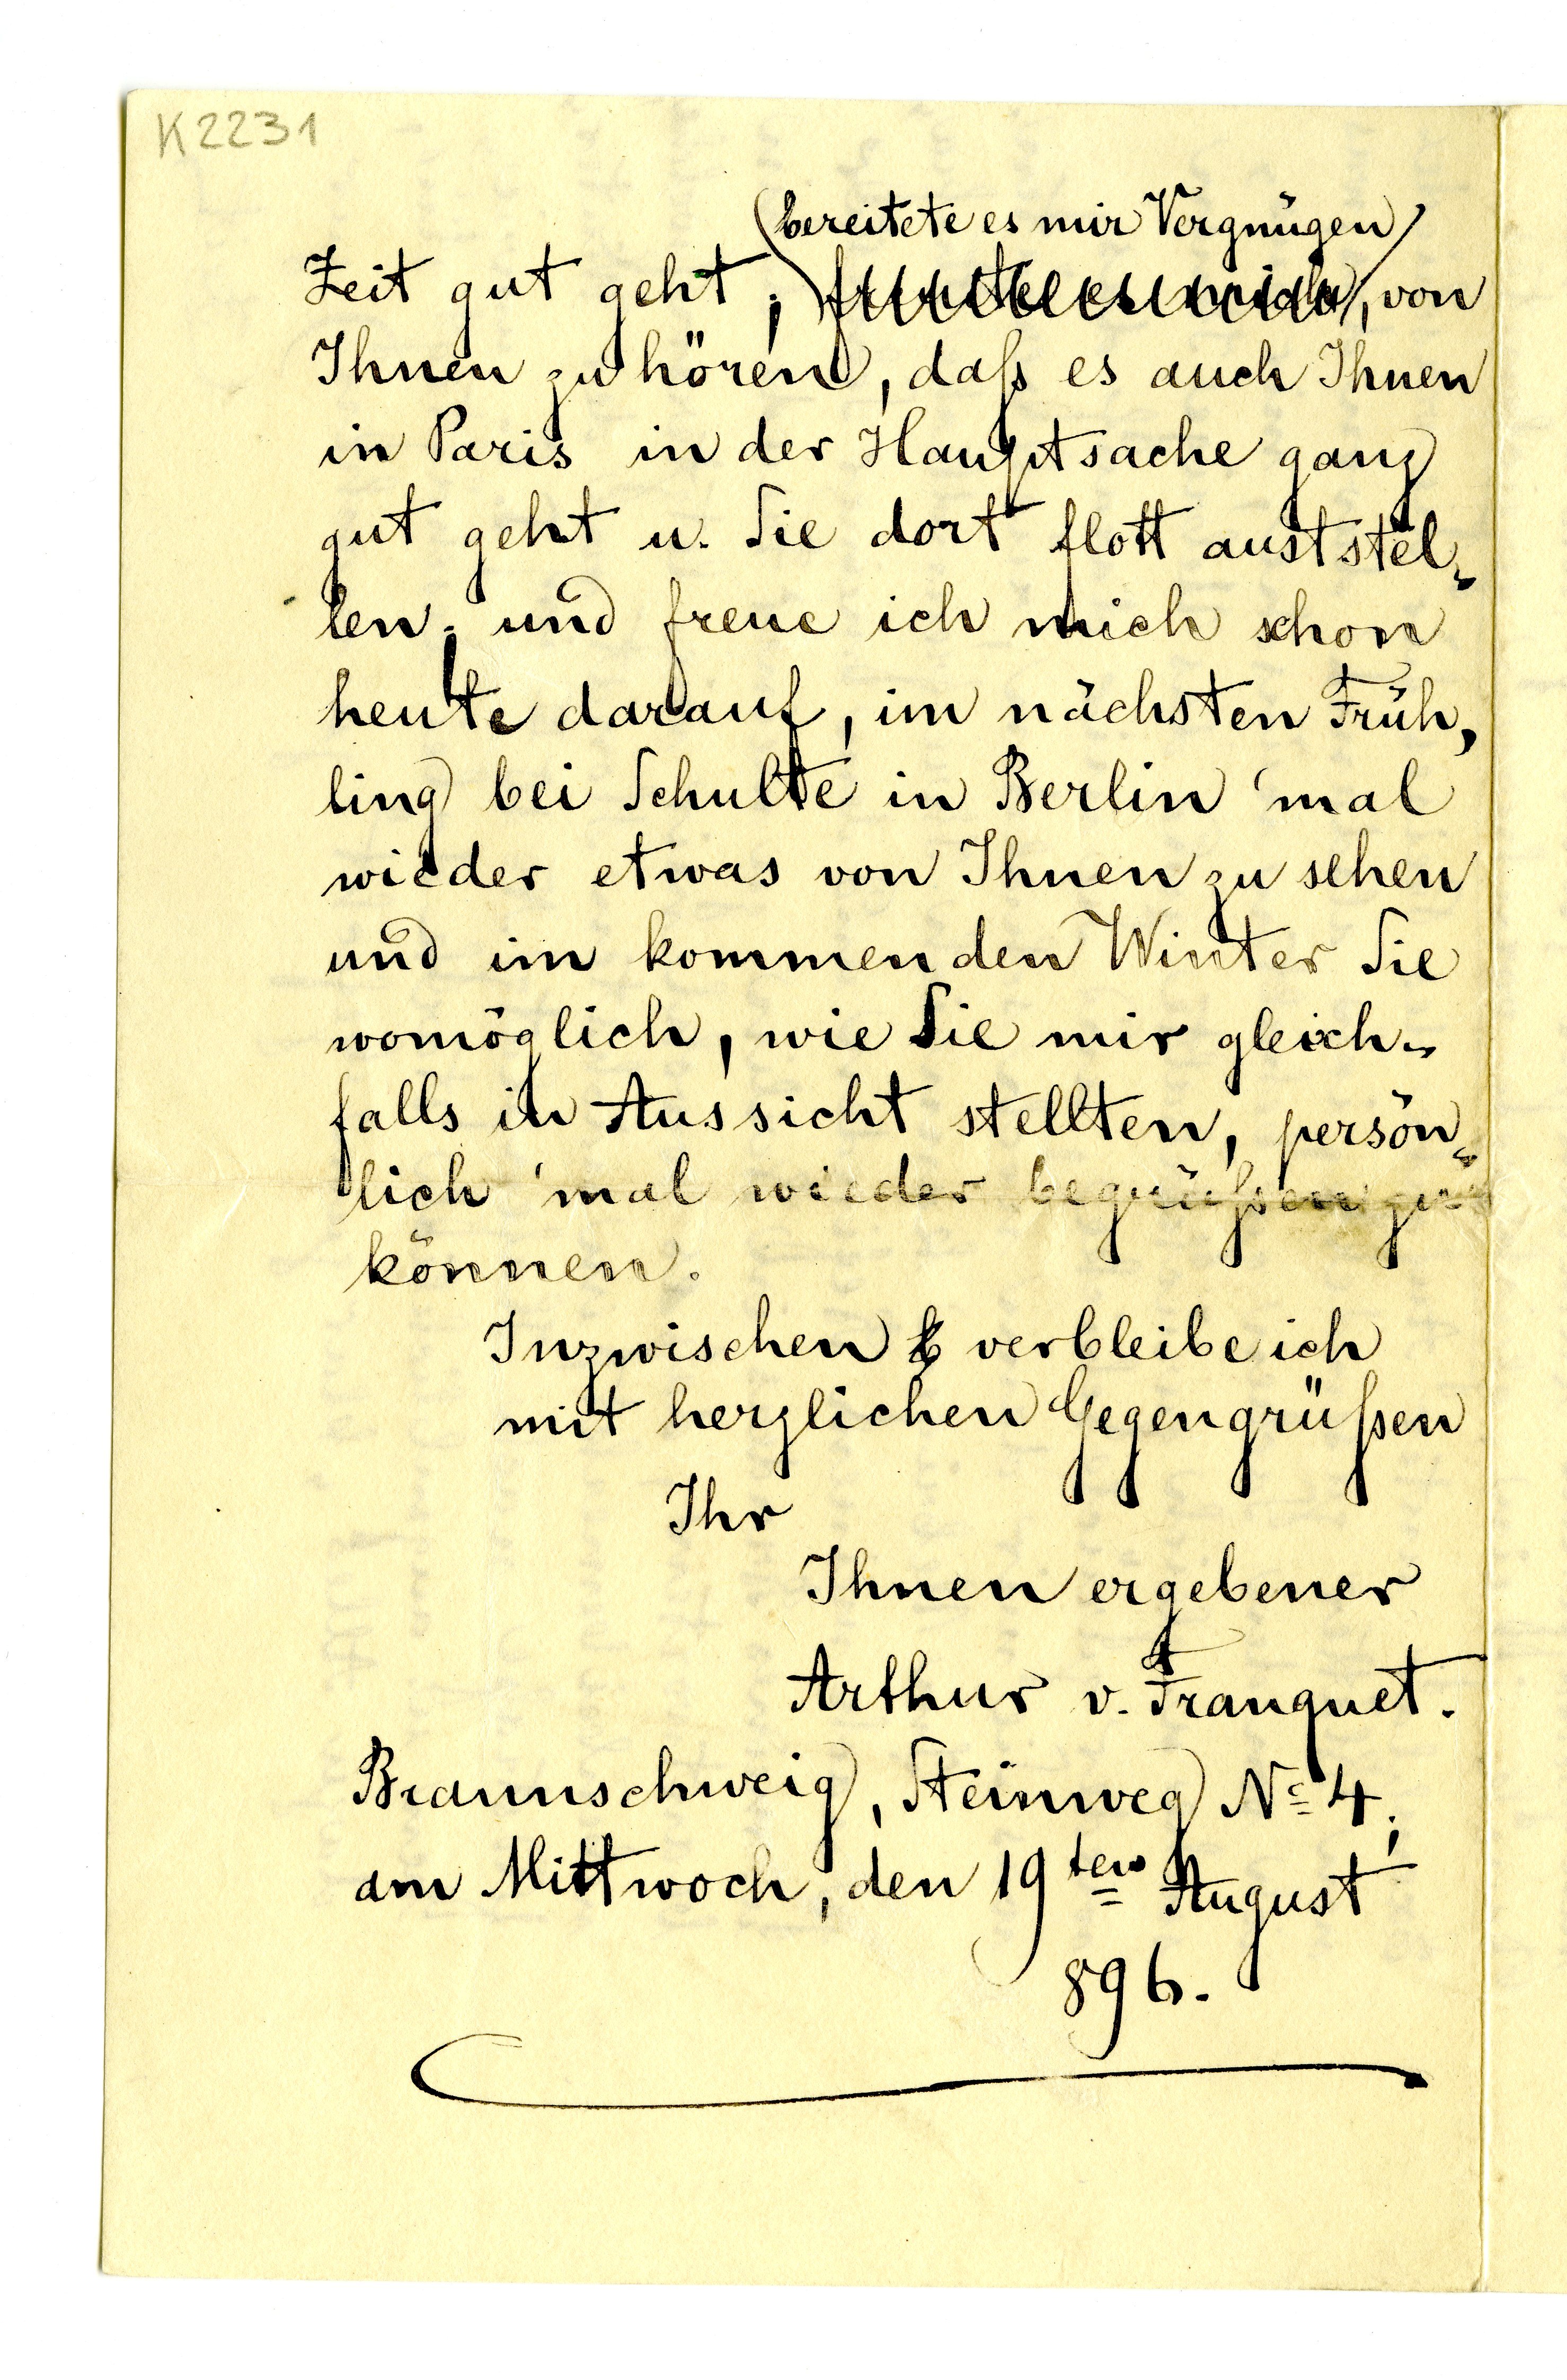 K2231
bereitete es mir Vergnügen
Zeit gut geht; , von
Ihnen zu hören, daß es auch Ihnen
in Paris in der Hauptsache ganz
gut geht u. Sie dort flott auststel-
len; und freue ich mich schon
heute darauf, im nächsten Früh-
ling bei Schulte in Berlin 'mal
wieder etwas von Ihnen zu sehen
und im kommenden Winter Sie
womöglich, wie Sie mir gleich-
falls in Aussicht stellten, persön-
lich 'mal wieder begrüßen zu
können.
Inzwischen verbleibe ich
mit herzlichen Gegengrüßen
Ihr
Ihnen ergebener
Arthur v. Franquet.
Braunschweig, Steinweg No 4;
am Mittwoch, den 19ten August
896.